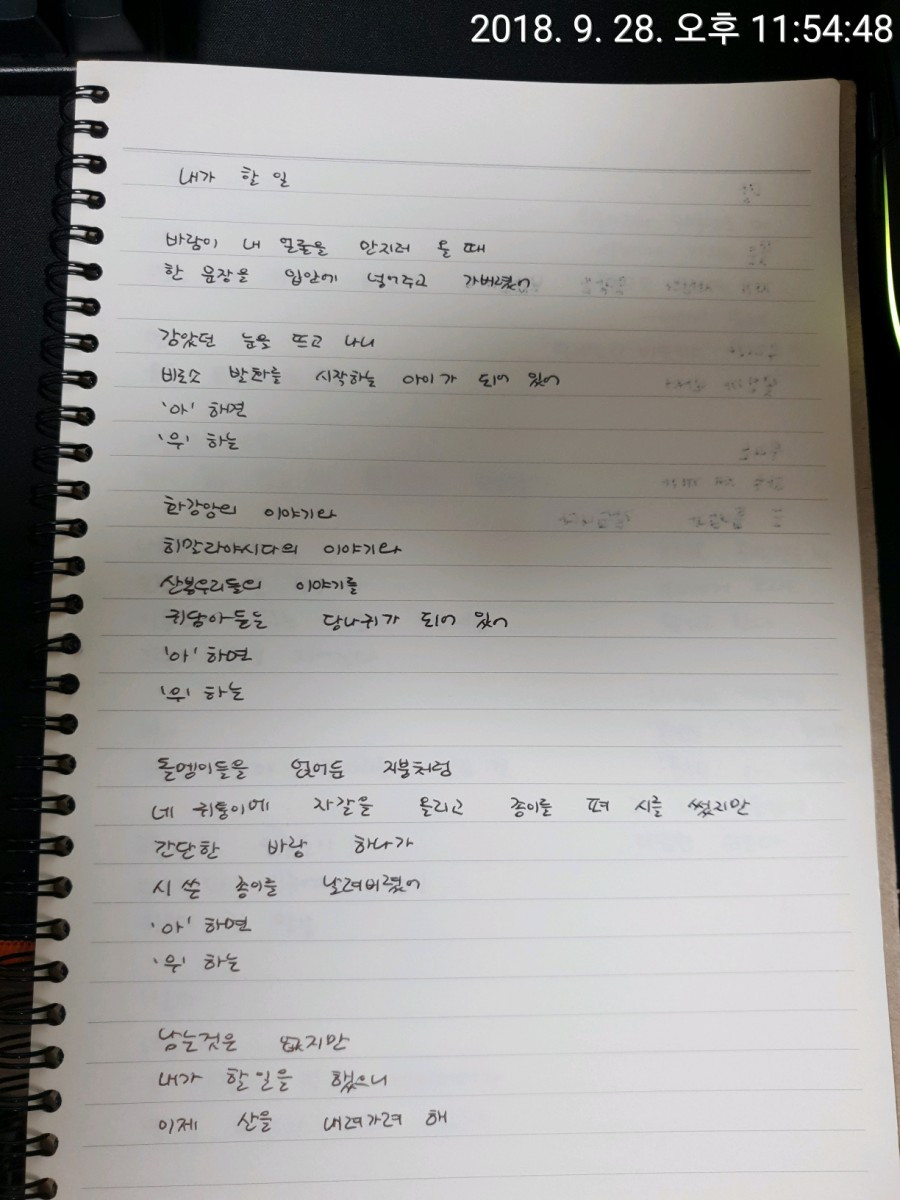 2018. 9. 28. 오후 11:54:48
내가 할 일
바람이 내 얼굴을 만지러 올 때
한 문장을 입안에 넣어주고 가버렸어
감았던 눈을 뜨고 나니
비로소 발화를 시작하는 아이가 되어 있어
'아' 해면
'우' 하는
이야기와
히말라야시다의 이야기와
산봉우리들의 이야기를
귀담아듣는 당나귀가 되어 있어
'아' 하면
'우' 하는
돌멩이들을 얹어둔 지붕처럼
네 귀퉁이에 자갈을 올리고 종이를 펴 시를 썼지만
간단한 바람 하나가
시 쓴 종이를 날려버렸어
'아' 하면
'우' 하는
남는것은 없지만
내가 할일을 했으니
이제 산을 내려가려 해